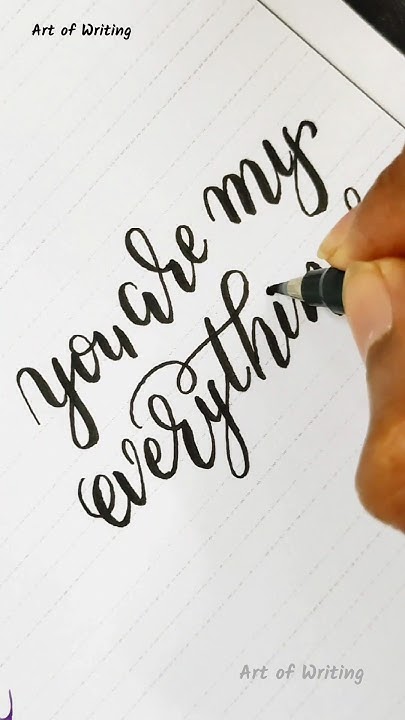 Art of Writing
you are my
everything
Art of Writing